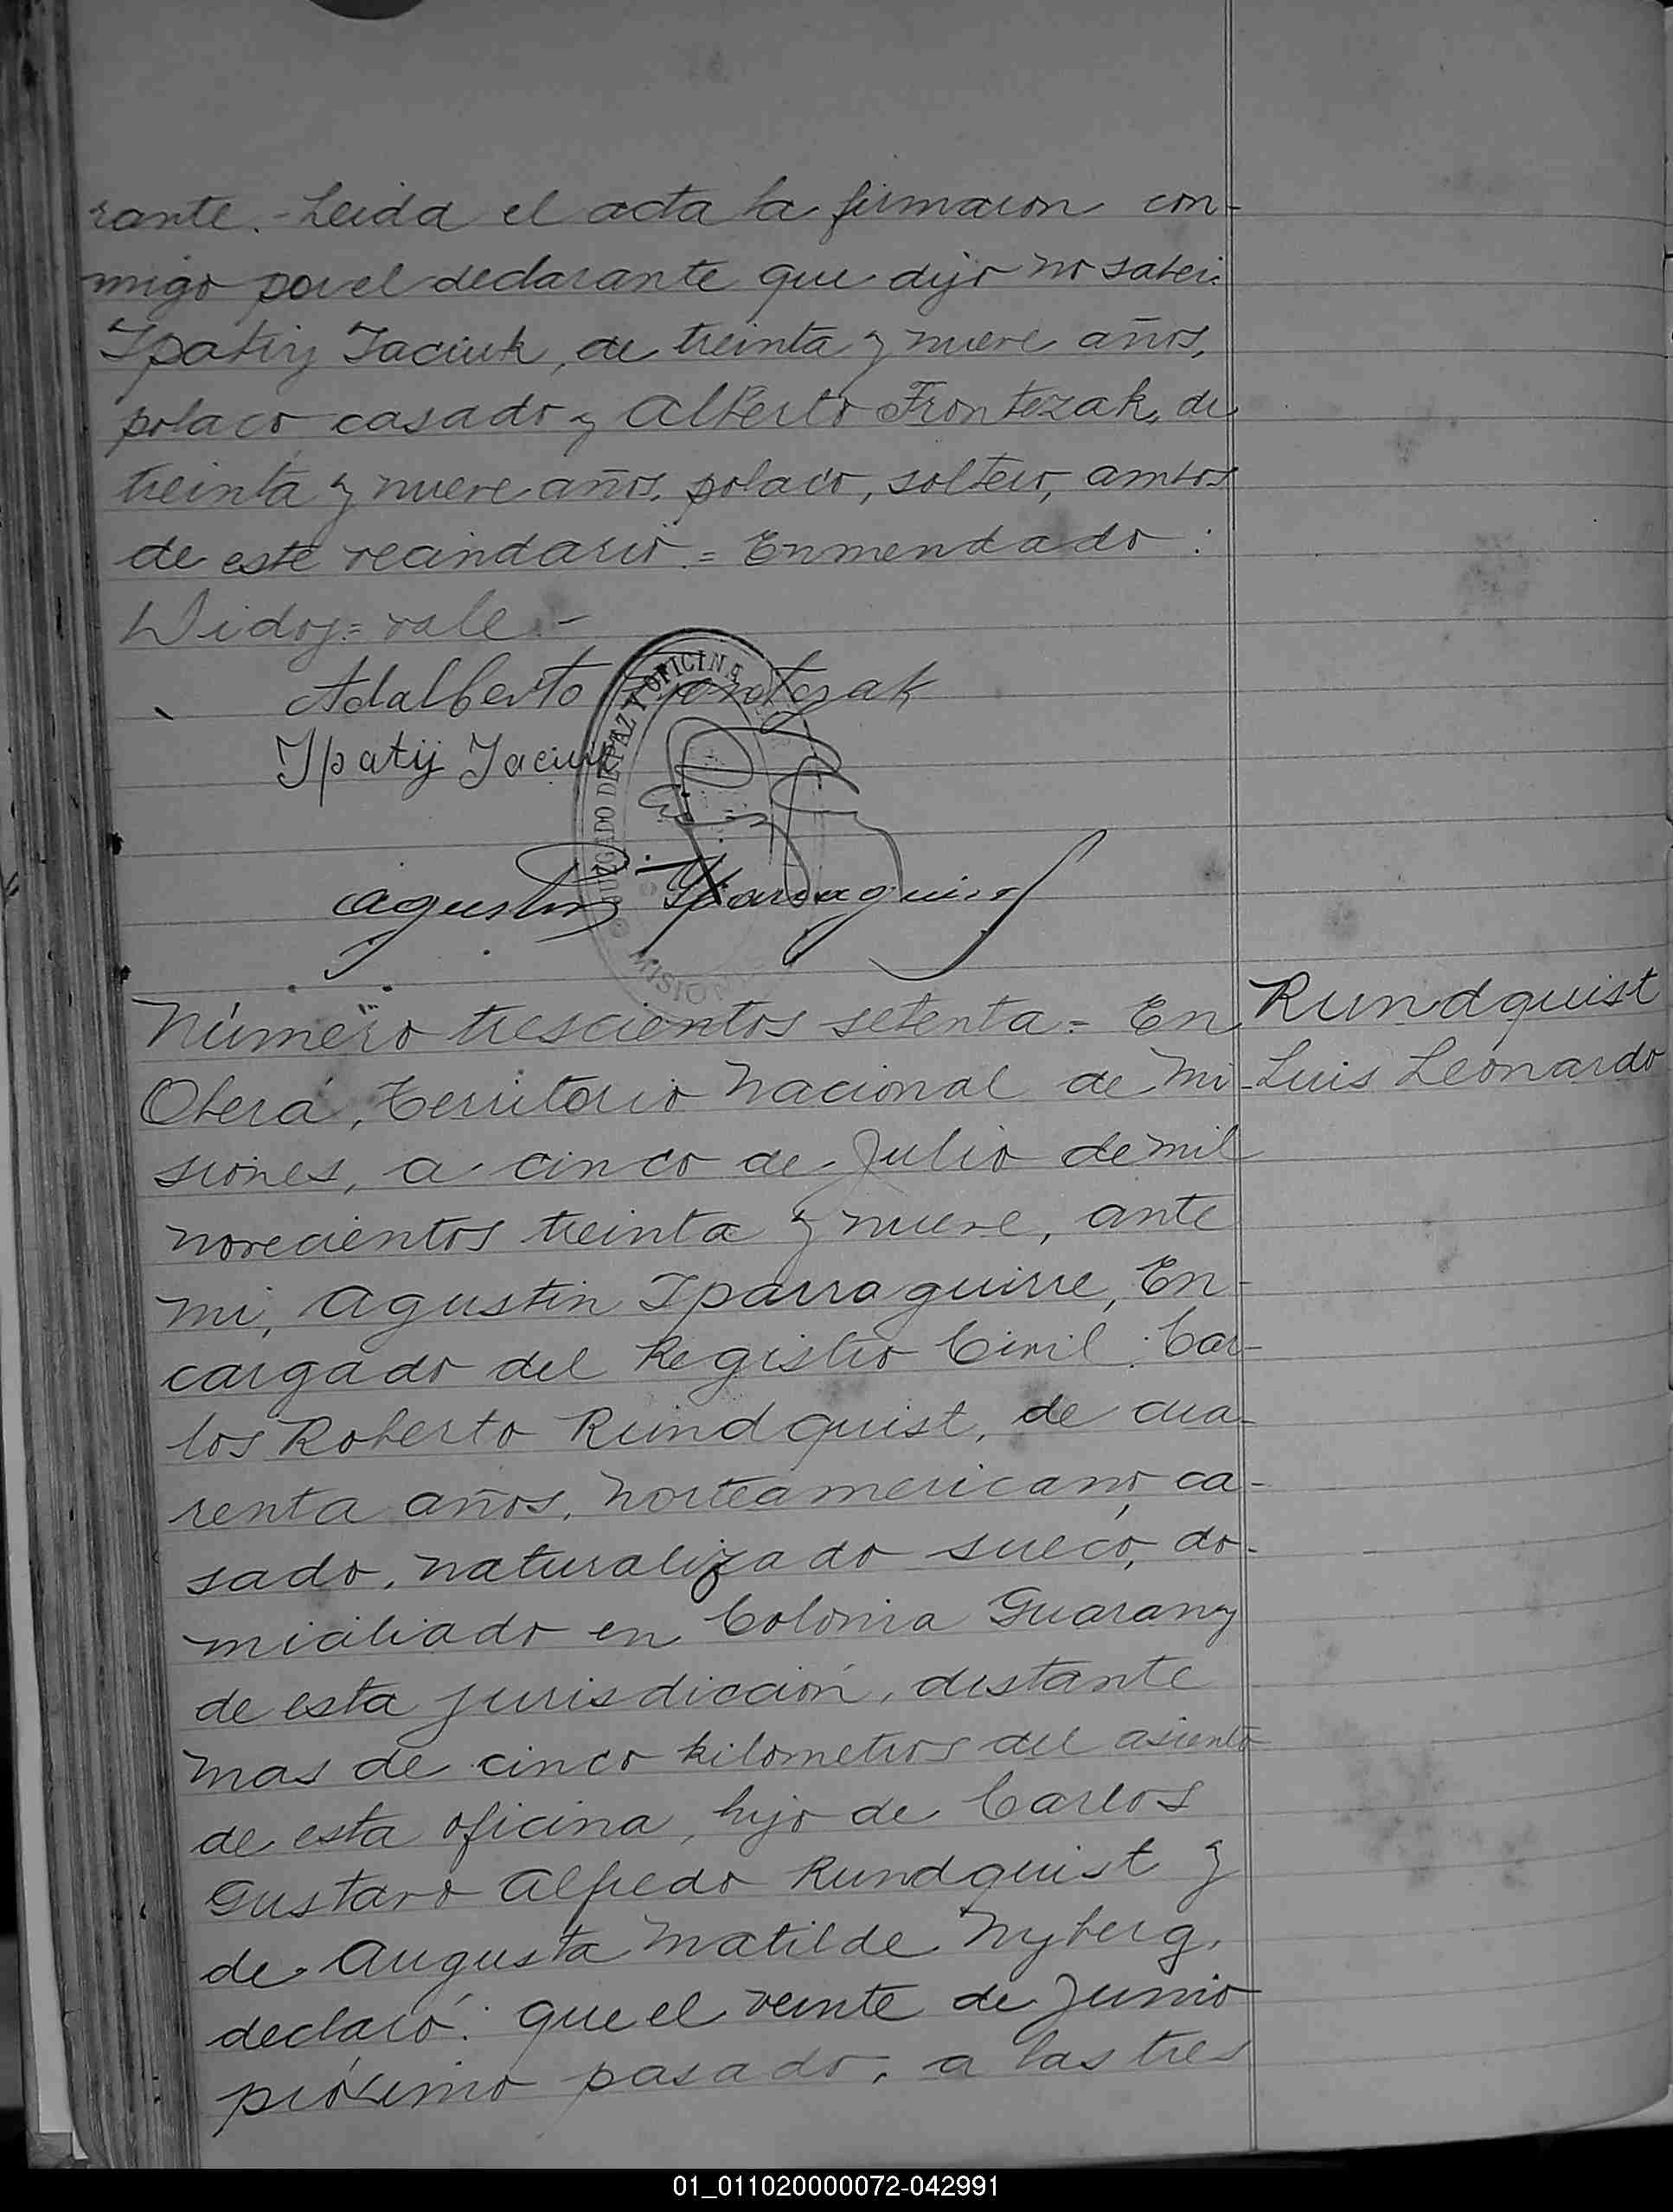 rante. - Leida el acta la firmaron con-
migo por el declarante que dijo no saber:
Ipatiy Iaciuk, de treinta y nueve años,
polaco, casado y Alberto Frontezak, de
treinta y nueve años, polaco, soltero, ambos
de este vecindario. = Enmendado:
= vale. -
Adalberto Frontczak
Ipatij Jaciuk
JUZGADO DE PAZ Y OFICINA
MISIONES
Agustin Iparraguirre
Número trescientos setenta = En
Rundquist
Oberá, Territorio Nacional de Mi-
Luis Leonardo
siones, a cinco de Julio de mil
novecientos treinta y nueve, ante
mi, Agustin Iparraguirre, En-
cargado del Registro Civil: Car-
los Roberto Rundquist, de cua-
renta años, norteamericano, ca-
sado, naturalizado sueco, do-
miciliado en Colonia Guarany
de esta jurisdicción, distante
mas de cinco kilometros del asiento
de esta oficina, hijo de Carlos
Gustavo Alfredo Rundquist y
de Augusta Matilde Nyberg,
declaró: Que el veinte de Junio
próximo pasado, a las tres
01_011020000072-042991